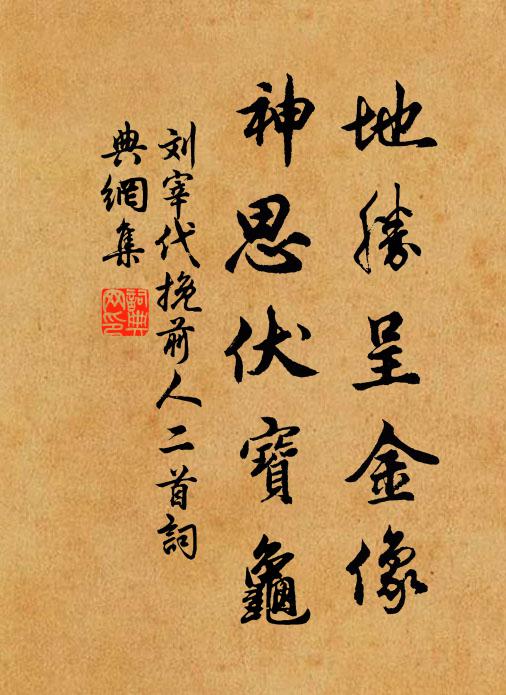 地勝呈金像
神思伏寶龜
刘宰代挽前人二首詞
典網集
詞典網印